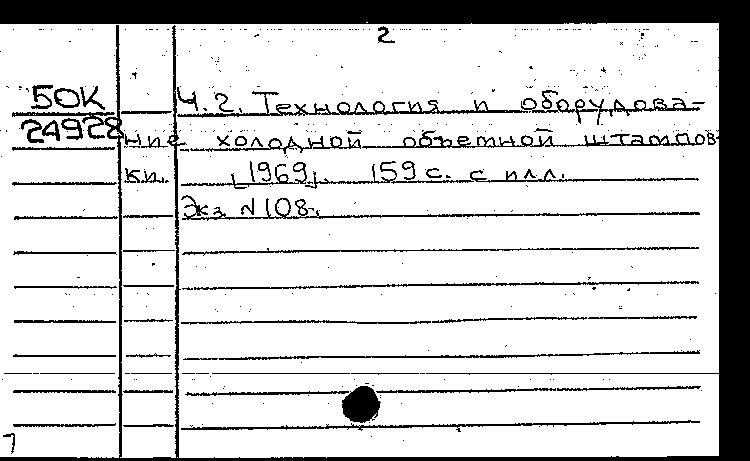 2
50К Ч.2. Технология и оборудова-
24928 ние холодной объемной штампов-
ки. [1969]. 159 с. с илл.
Экз. N 108.
7